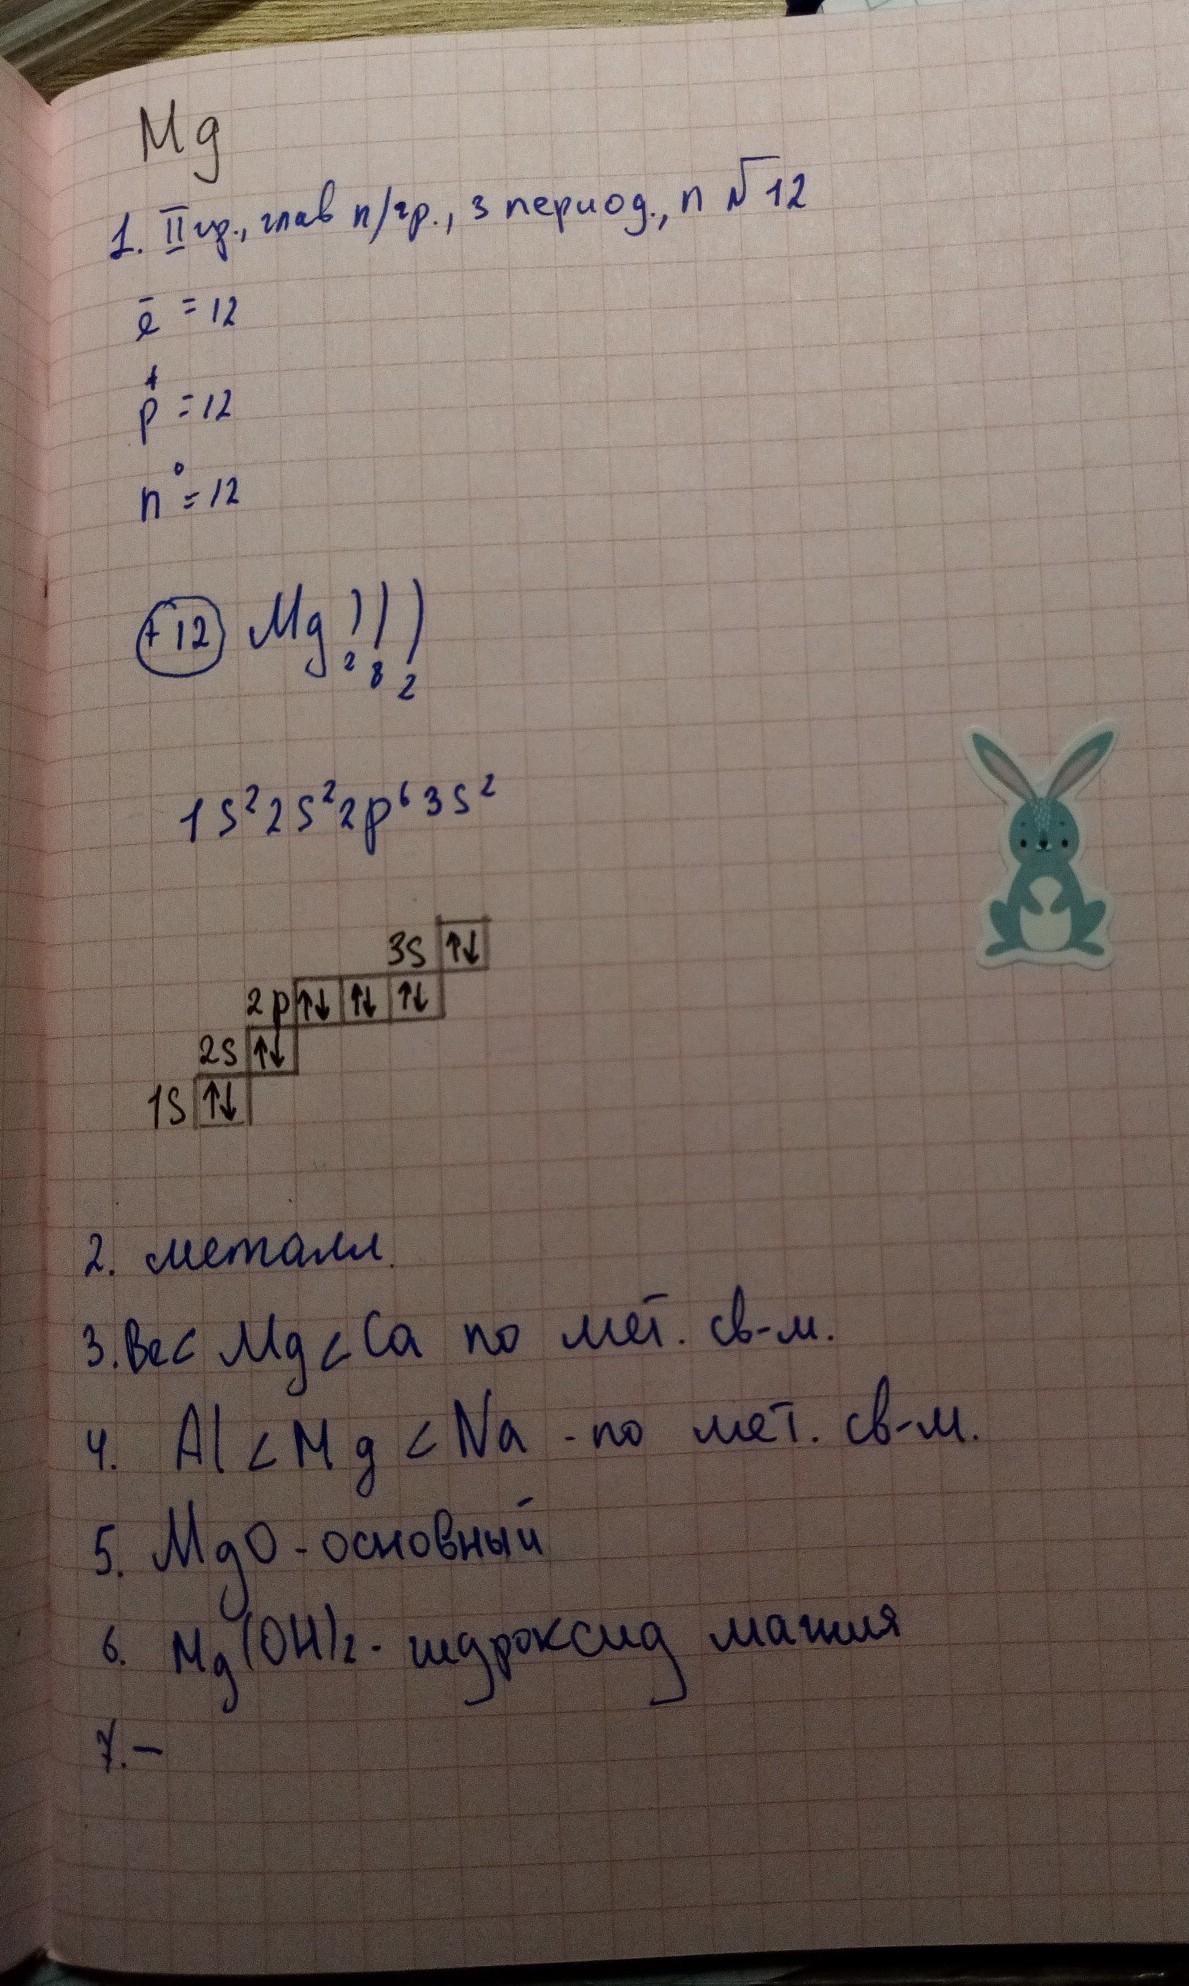 Mg
1. II гр., глав п/гр., 3 период., п №12
e⁻ = 12
p⁺ = 12
n⁰ = 12
+12 Mg ) ) )
2 8 2
1s²2s²2p⁶3s²
3s ↑↓
2p ↑↓ ↑↓ ↑↓
2s ↑↓
1s ↑↓
2. металл.
3. Be < Mg < Ca по мет. св-м.
4. Al < Mg < Na - по мет. св-м.
5. MgO - основный
6. Mg(OH)₂ - гидроксид магния
7. –